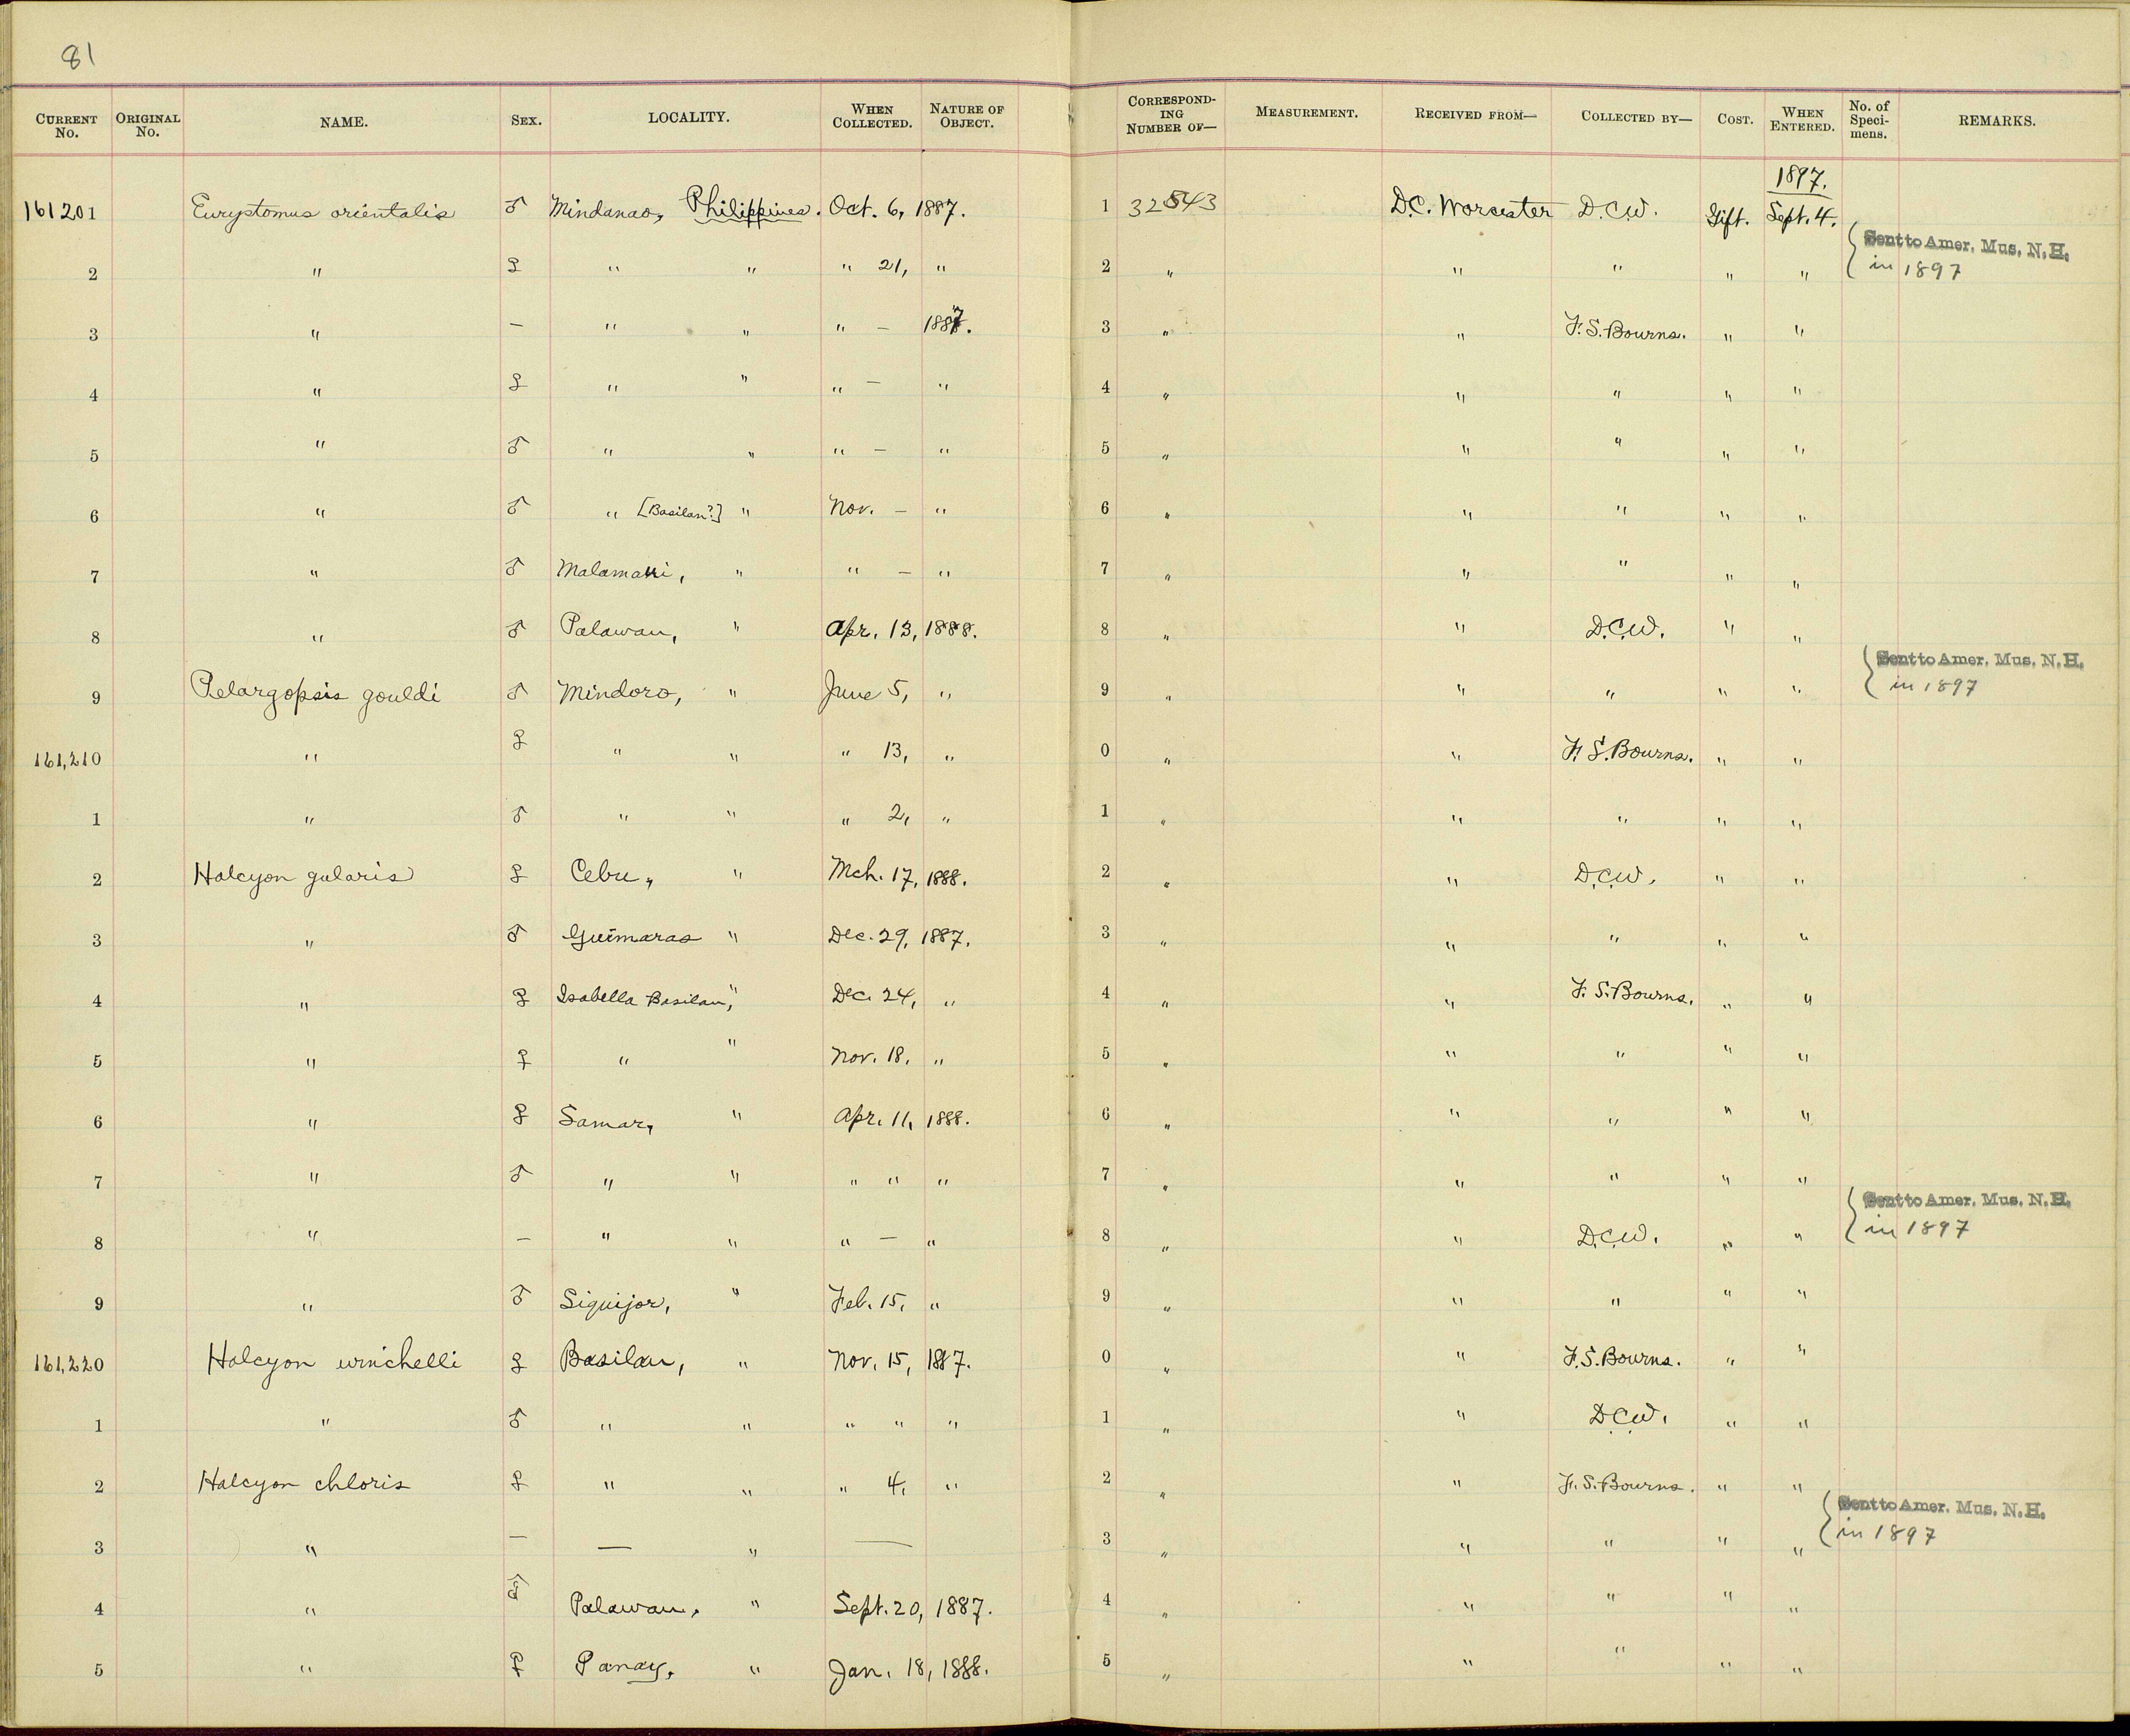 81
CURRENT No. ORIGINAL No. NAME. SEX. LOCALITY. WHEN COLLECTED. NATURE OF OBJECT. CORRESPONDING NUMBER OF— MEASUREMENT. RECEIVED FROM— COLLECTED BY— COST. WHEN ENTERED. No. of Specimens. REMARKS.
1897.
161201 Eurystomus orientalis ♂ Mindanao, Philippines. Oct. 6, 1887. 1 32543 D.C. Worcester D.C.W. Gift. Sept. 4.
2 " ♀ " " " 21, " 2 " " " " " { Sent to Amer. Mus. N.H. in 1897
3 " — " " " — 1887. 3 " " F. S. Bourns. " "
4 " ♀ " " " — " 4 " " " " "
5 " ♂ " " " — " 5 " " " " "
6 " ♂ " [Basilan?] " Nov. — " 6 " " " " "
7 " ♂ Malamaui, " " — " 7 " " " " "
8 " ♂ Palawan, " Apr. 13, 1888. 8 " " D.C.W. " "
9 Pelargopsis gouldi ♂ Mindoro, " June 5, " 9 " " " " " { Sent to Amer. Mus. N.H. in 1897
161,210 " ♀ " " " 13, " 0 " " F. S. Bourns. " "
1 " ♂ " " " 2, " 1 " " " " "
2 Halcyon gularis ♀ Cebu, " Mch. 17, 1888. 2 " " D.C.W. " "
3 " ♂ Guimaras " Dec. 29, 1887. 3 " " " " "
4 " ♀ Isabella Basilan, " Dec. 24, " 4 " " F. S. Bourns. " "
5 " ♀ " " Nov. 18. " 5 " " " " "
6 " ♀ Samar, " Apr. 11, 1888. 6 " " " " "
7 " ♂ " " " " " 7 " " " " "
8 " — " " " — " 8 " " D.C.W. " " { Sent to Amer. Mus. N.H. in 1897
9 " ♂ Siquijor, " Feb. 15, " 9 " " " " "
161,220 Halcyon winchelli ♀ Basilan, " Nov. 15, 1887. 0 " " F. S. Bourns. " "
1 " ♂ " " " " " 1 " " D.C.W. " "
2 Halcyon chloris ♀ " " " 4, " 2 " " F. S. Bourns. " "
3 " — — " — 3 " " " " " { Sent to Amer. Mus. N.H. in 1897
4 " ♂ Palawan, " Sept. 20, 1887. 4 " " " " "
5 " ♀ Panay, " Jan. 18, 1888. 5 " " " " "